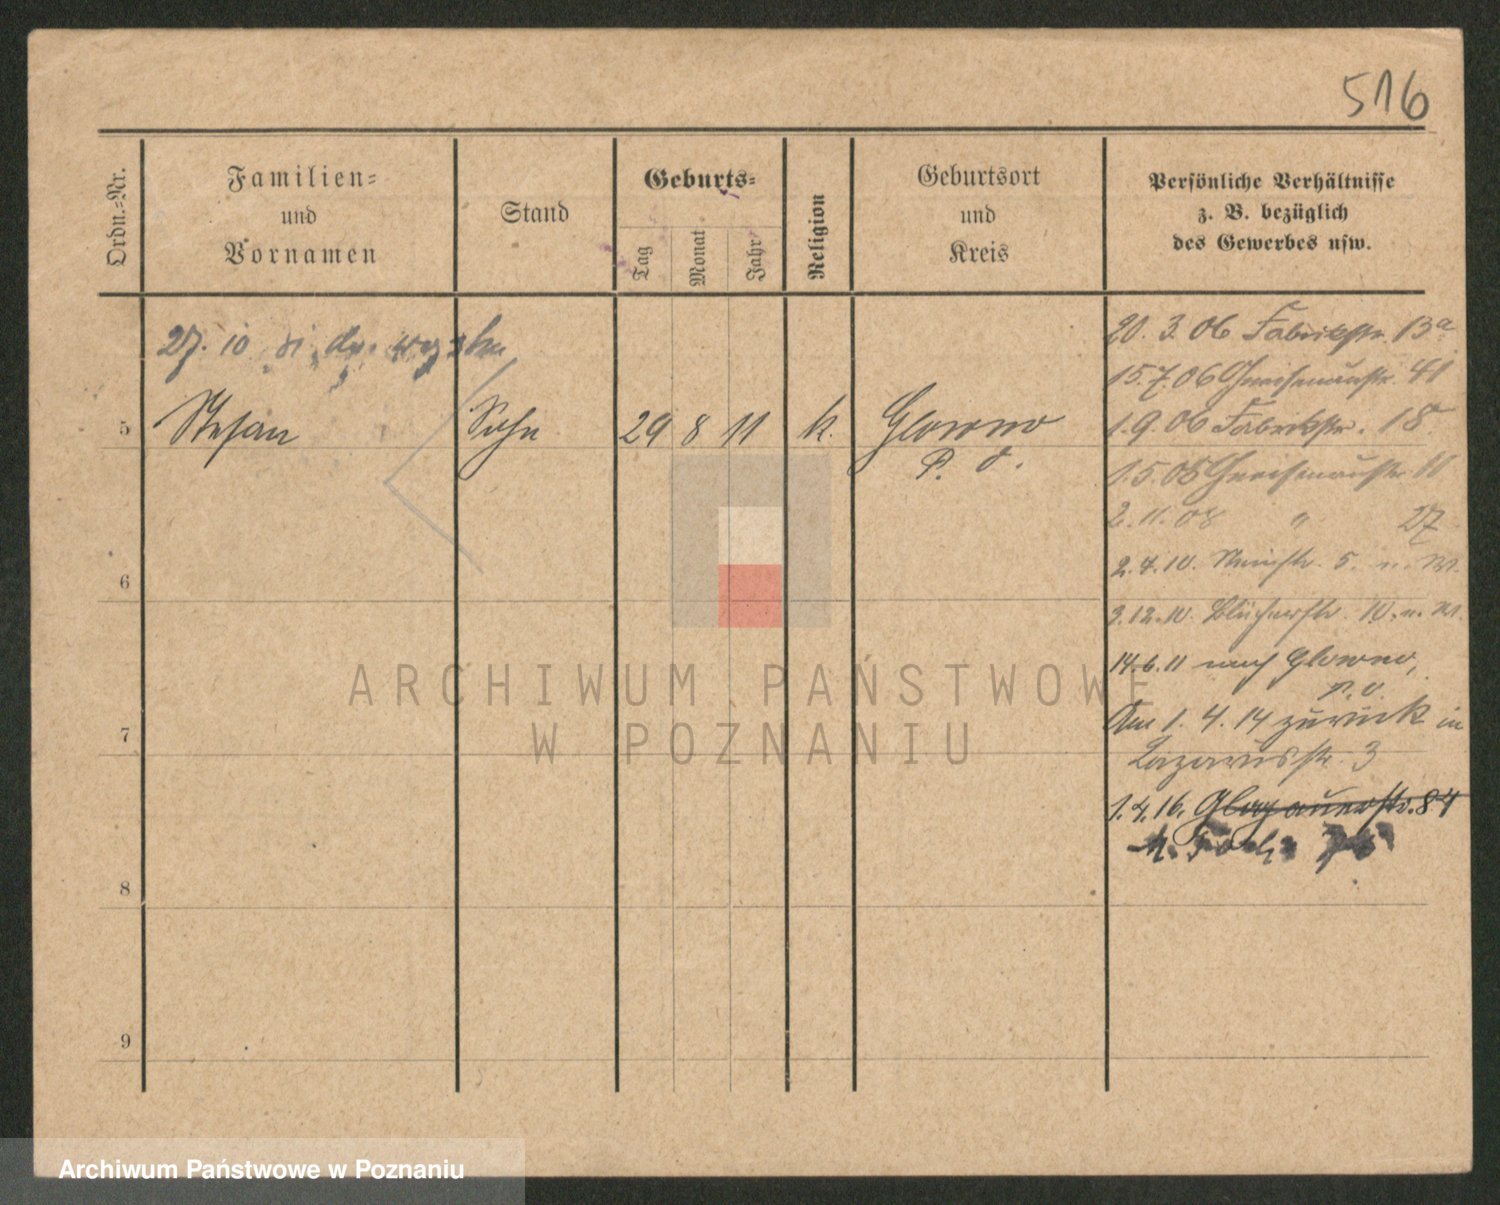 516
Ordn.=Nr.
Familien=
und
Vornamen
Stand
Geburts=
Tag
Monat
Jahr
Religion
Geburtsort
und
Kreis
Persönliche Verhältnisse
z. B. bezüglich
des Gewerbes usw.
27. 10
5 Stefan Sohn 29 8 11 k. Glowno
P. O.
6
7
8
9
20. 3. 06 Fabrikstr. 13a
15.7.06 Gneisenaustr. 41
1.9.06 Fabrikstr. 18
1.5.08 Gneisenaustr. 11
2.11.08 " 27
2.4.10. 5.
3.12.10. Blücherstr. 10.
14.6.11 nach Glowno,
P. O.
Am 1. 4. 14 zurück in
Lazarusstr. 3
1.4.16. Glogauerstr. 84
M. Focha
ARCHIWUM PAŃSTWOWE
W POZNANIU
Archiwum Państwowe w Poznaniu